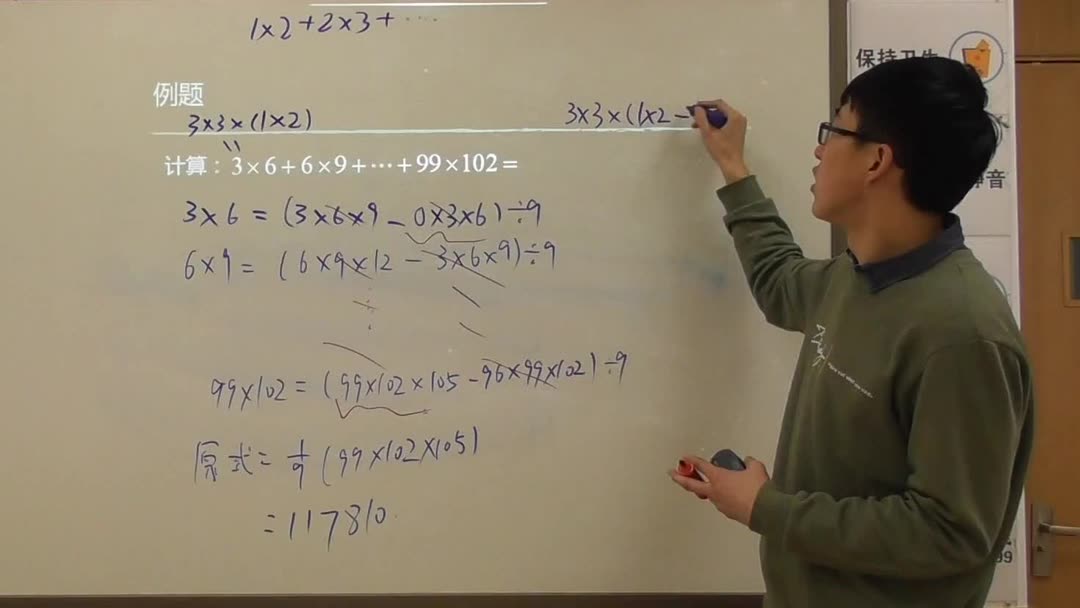 1×2+2×3+⋯
保持卫生
例题
3×3×(1×2)
3×3×(1×2-
计算：3×6+6×9+⋯+99×102=
静音
3×6=(3×6×9-0×3×6)÷9
6×9=(6×9×12-3×6×9)÷9
99×102=(99×102×105-96×99×102)÷9
原式=1/9(99×102×105)
=117810.